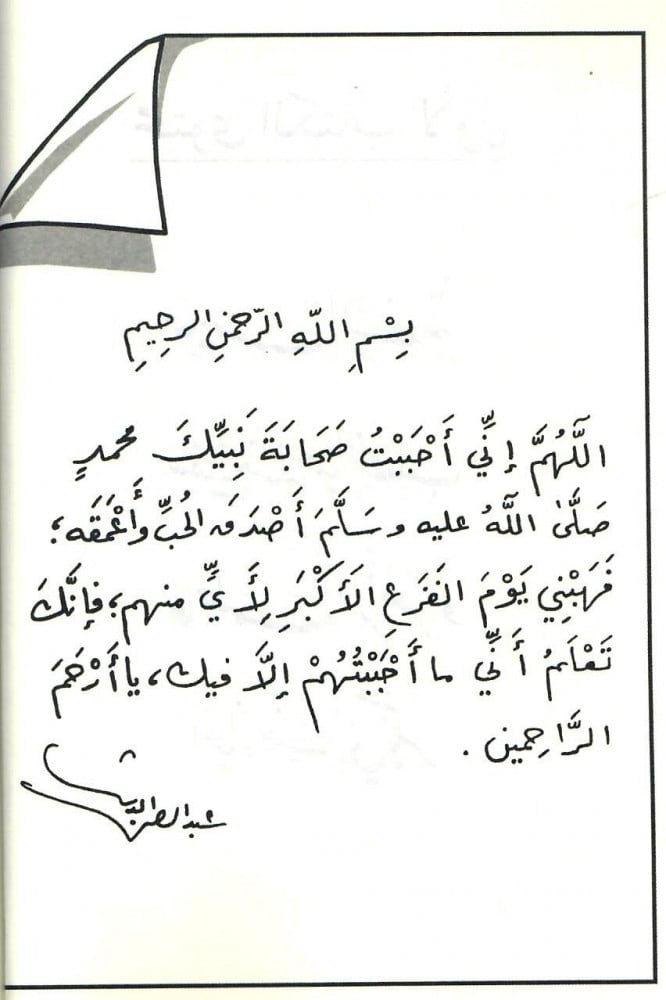 بِسْمِ اللَّهِ الرَّحمنِ الرحِيمِ
اللَّهُمَّ إنِّي أَحْبَبْتُ صَحَابَةَ نَبِيِّكَ محمدٍ
صَلَّىٰ اللَّهُ عليه وسَلَّمَ أَصْدَقَ الحُبِّ وأَعْمَقَه؛
فَهَبْنِي يَوْمَ الفَزَعِ الأَكْبَرِ لِأَيٍّ منهم؛ فإنَّكَ
تَعْلَمُ أَنِّي ما أَحْبَبْتُهُمْ إلَّا فيك، يا أَرْحَمَ
الرَّاحِمين.